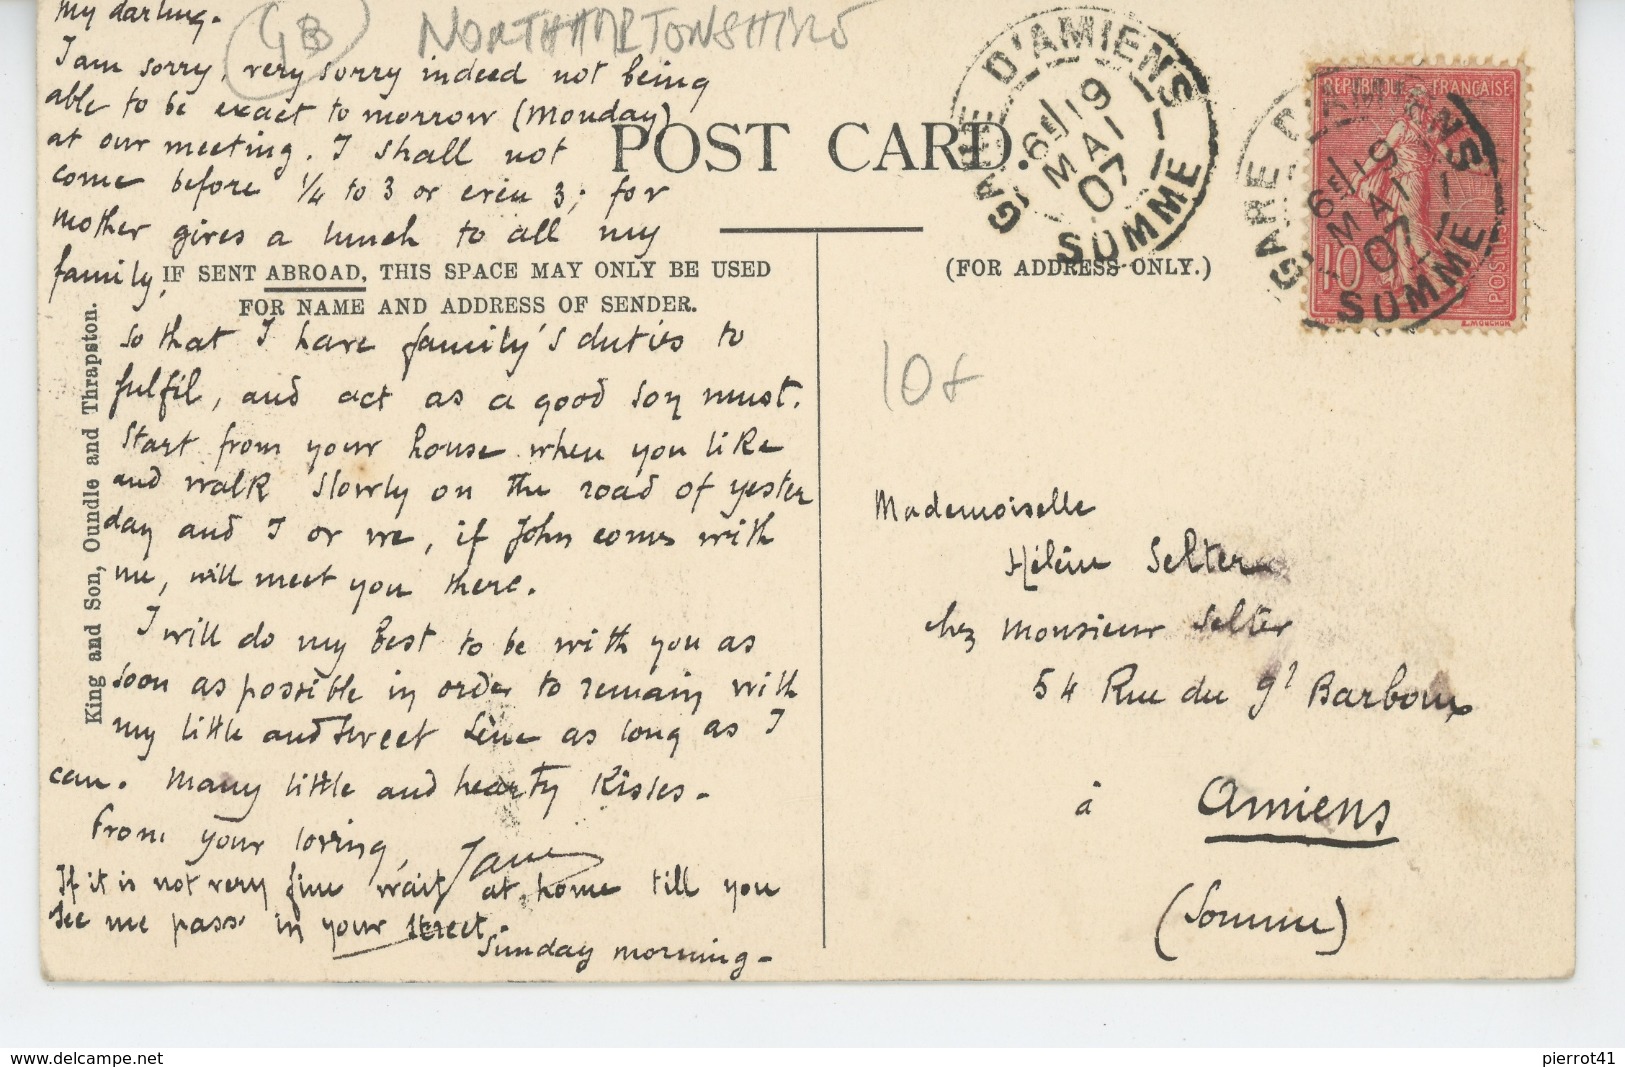 My darling.
I am sorry, very sorry indeed not being
able to be exact to morrow (Monday)
at our meeting. I shall not
come before 1/4 to 3 or even 3; for
mother gives a lunch to all my
family,
so that I have family's duties to
fulfil, and act as a good son must.
Start from your house when you like
and walk slowly on the road of yester
day and I or we, if John comes with
me, will meet you there.
I will do my best to be with you as
soon as possible in order to remain with
my little and sweet Lène as long as I
can. Many little and hearty kisses.
From your loving,
If it is not very fine wait at home till you
see me pass in your street.
Sunday morning.
GB
NORTHAMPTONSHIRE
POST CARD.
IF SENT ABROAD, THIS SPACE MAY ONLY BE USED
FOR NAME AND ADDRESS OF SENDER.
(FOR ADDRESS ONLY.)
King and Son, Oundle and Thrapston.
GARE D'AMIENS
6E/19
MAI
07
SOMME
REPUBLIQUE FRANÇAISE
10
POSTES
E. MOUCHON
GARE D'AMIENS
6E/19
MAI
07
SOMME
10
Mademoiselle
Hélène Selter
chez Monsieur Selter
54 Rue du Gl Barboux
à Amiens
(Somme)
www.delcampe.net
pierrot41